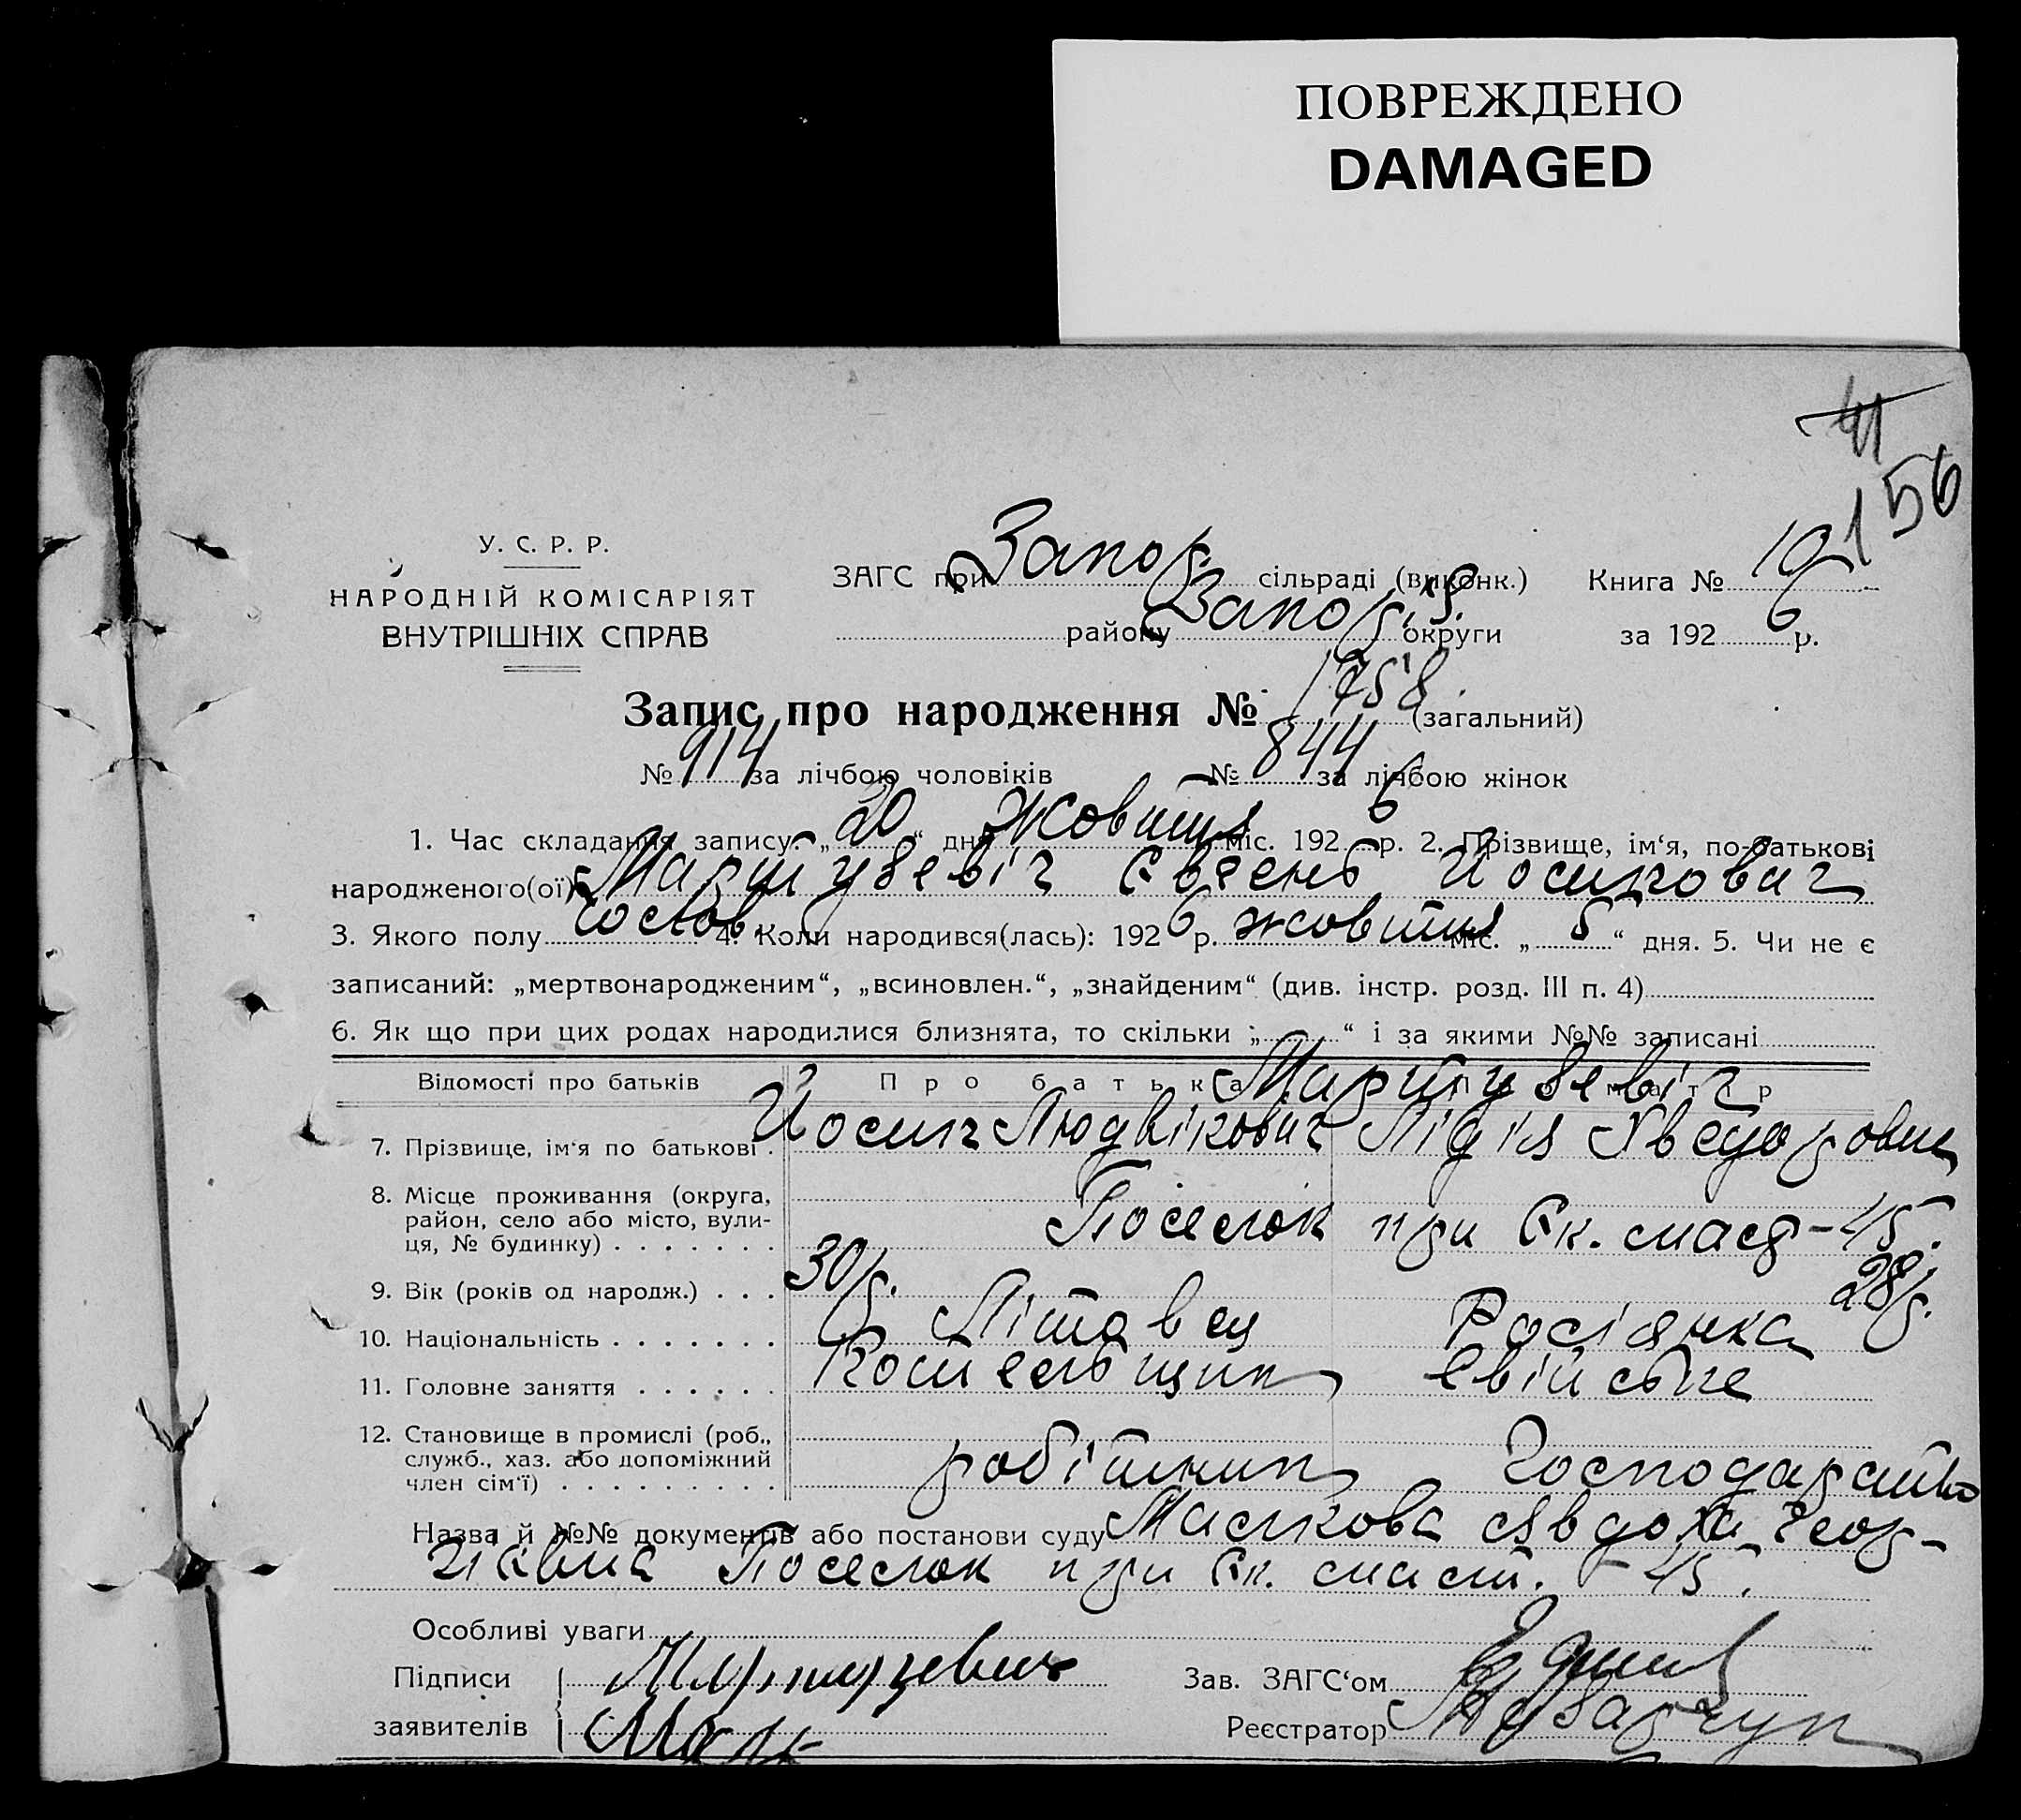 ПОВРЕЖДЕНО
DAMAGED
41
156
У. С. Р. Р.
НАРОДНІЙ КОМІСАРІЯТ
ВНУТРІШНІХ СПРАВ
ЗАГС при Запор. сільраді (виконк.) Книга № 10
району Запоріз. округи за 1926 р.
Запис про народження № 1758 (загальний)
№ 914 за лічбою чоловіків № 844 за лічбою жінок
1. Час складання запису: „20“ дня Жовтня міс. 1926 р. 2. Прізвище, ім‘я, по-батькові
народженого(ої) Мартузевіч Євгень Йосипович
3. Якого полу чолов. 4. Коли народився(лась): 1926 р. жовтня міс. „5“ дня. 5. Чи не є
записаний: „мертвонародженим“, „всиновлен.“, „знайденим“ (див. інстр. розд. III п. 4)
6. Як що при цих родах народилися близнята, то скільки „ “ і за якими №№ записані
Відомості про батьків Про батька Мартузевіч Про матір
7. Прізвище, ім‘я по батькові. Йосип Людвікович Лідія Хведоровна
8. Місце проживання (округа,
район, село або місто, вули-
ця, № будинку) . . . . . . . Поселок при Єк. маст - 45.
9. Вік (років од народж.) . . . 30 р. 28 р.
10. Національність . . . . . . . Літовец Росіянка
11. Головне заняття . . . . . . Котельщик Свійське
12. Становище в промислі (роб.,
служб., хаз. або допоміжний
член сім‘ї) . . . . . . . . . робітник Господарство
Назва й №№ документів або постанови суду Маслкова Явдоха Геор-
гіївна Поселок при Єк. маст. - 45.
Особливі уваги
Підписи Мартузевич Зав. ЗАГС‘ом
заявителів Реєстратор